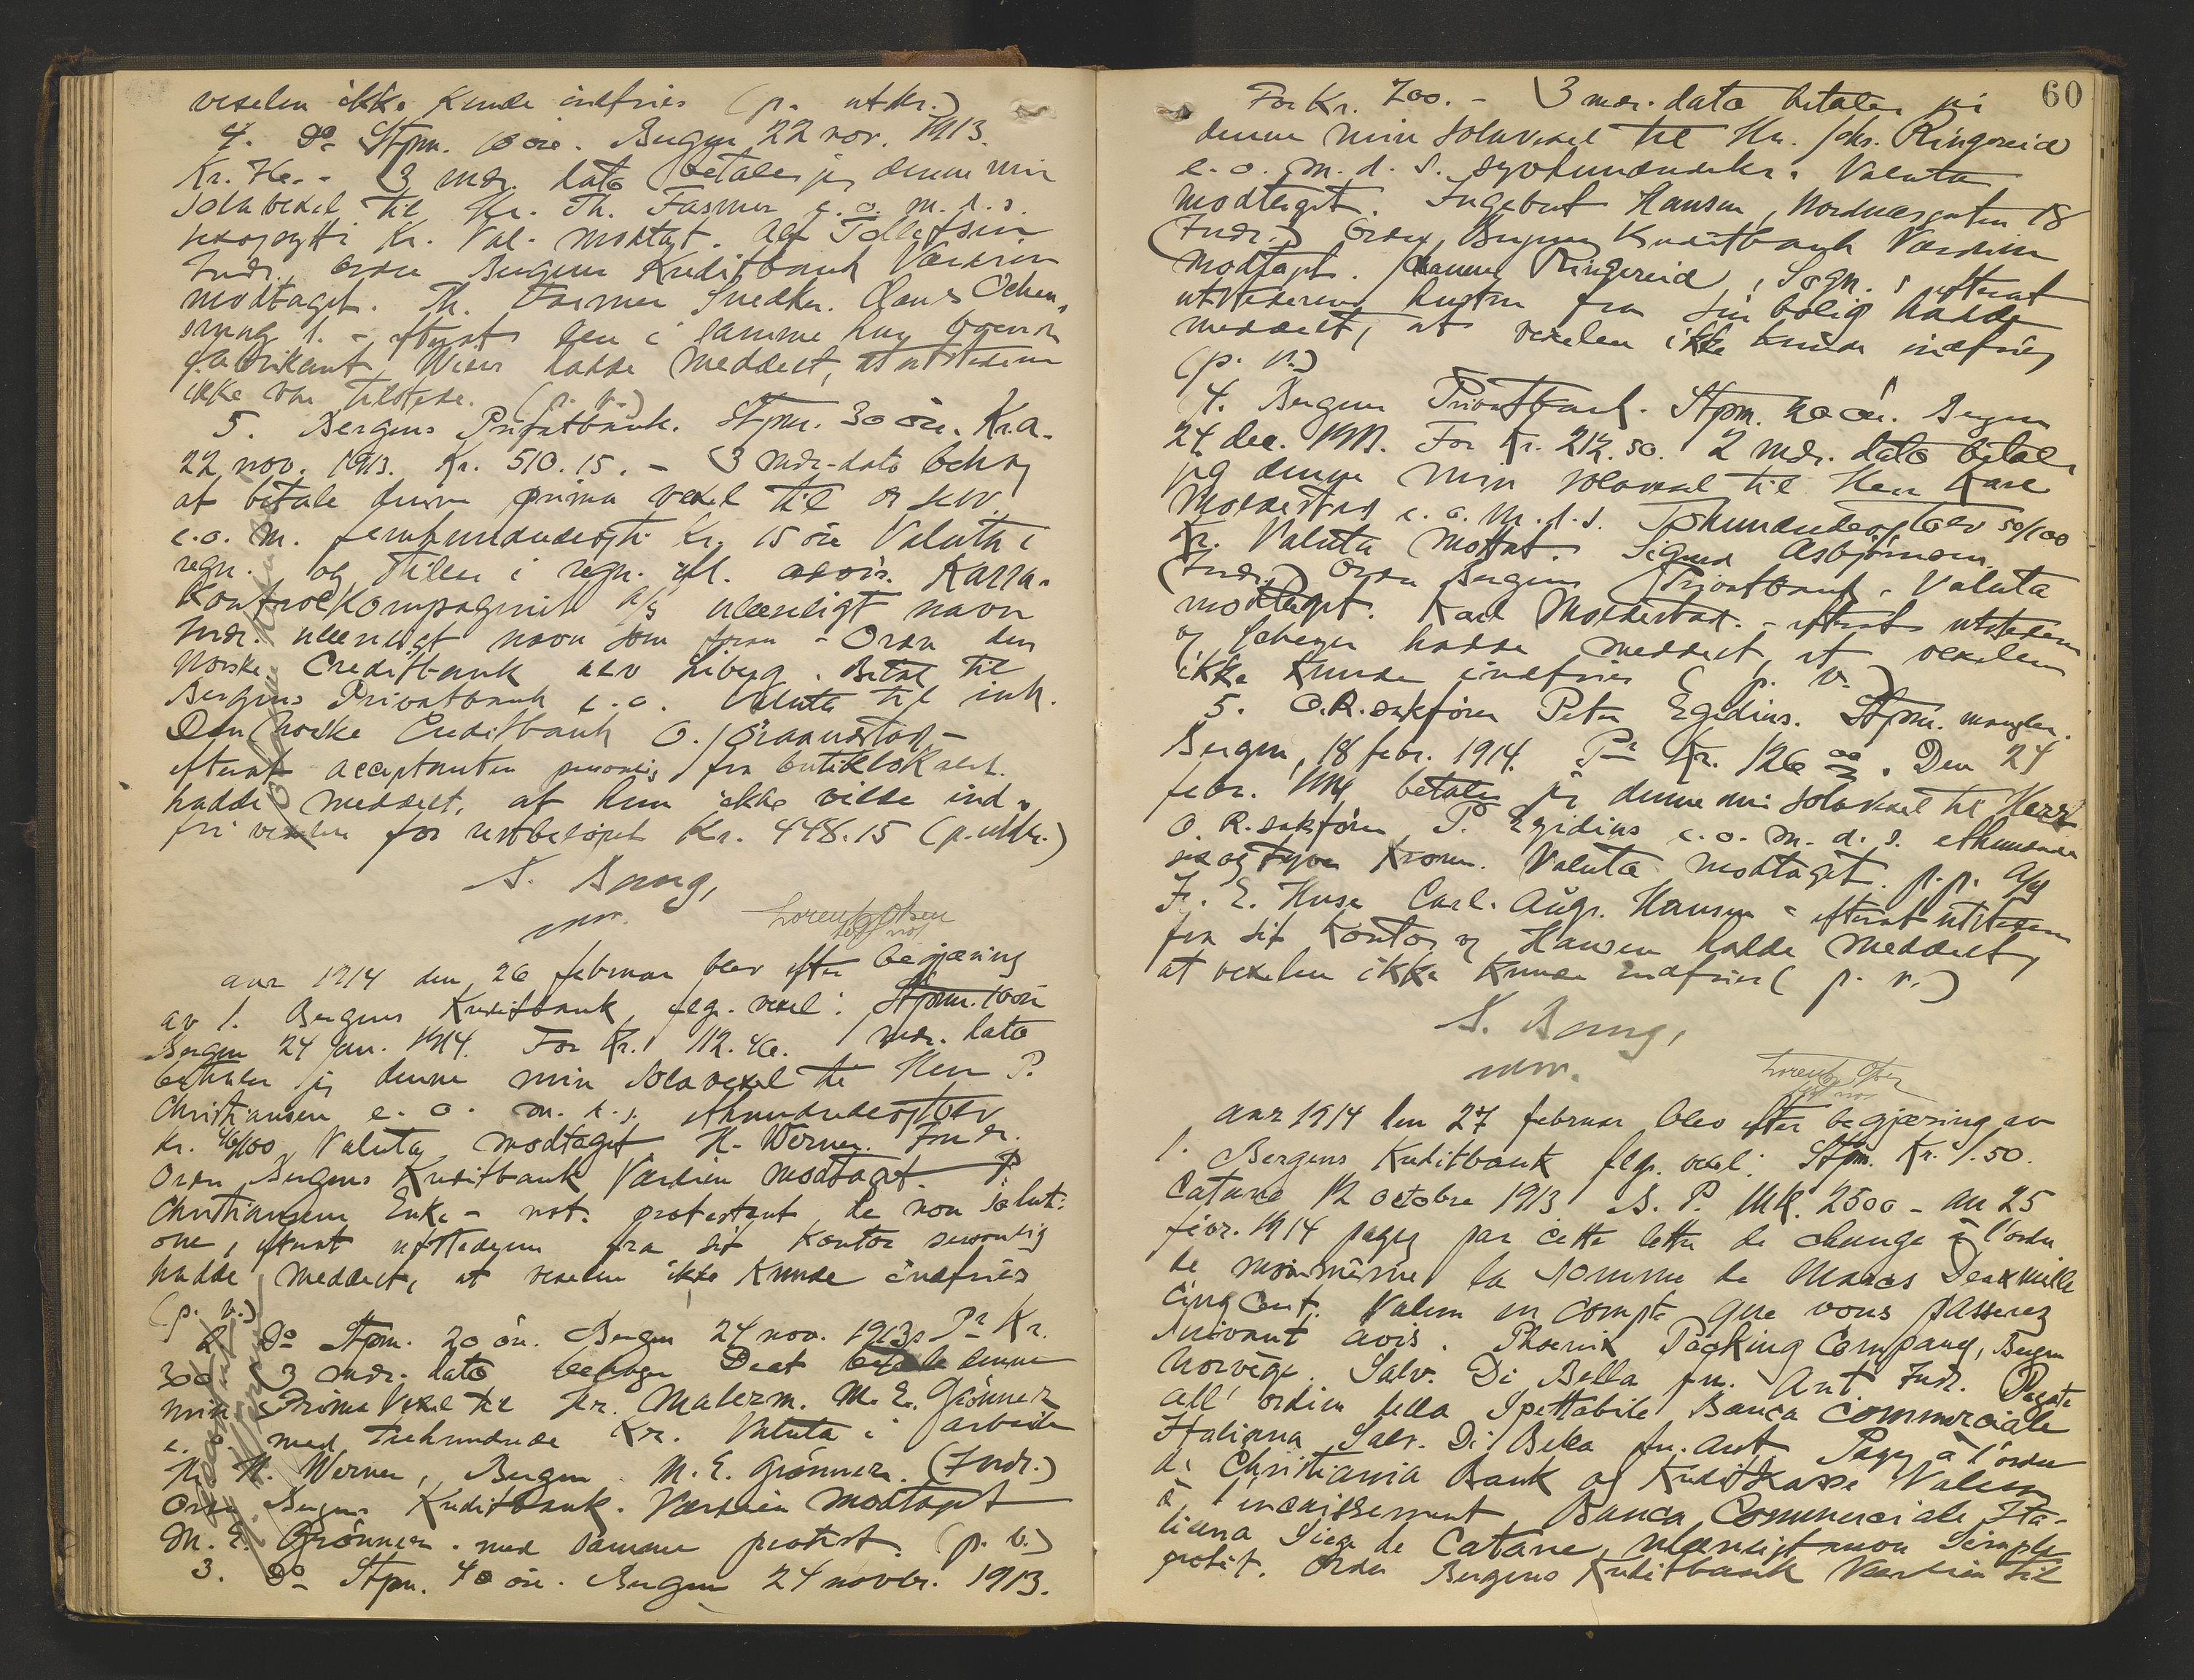 vexelen ikke kunde indfries (p. utstr.)
4. Do Stpm. 10 öre. Bergen 22 nov. 1913.
Kr. 76. - 3 mdr. dato betaler jeg denne min
Solavexel til Hr. Th. Fasmer e. o. m. d. s.
Kr. Val. modtagt. Alf Tollefsen
Indr. Ordre Bergens Kreditbank Værdien
modtaget. Th. Fasmer Snedker.
smug 1. - efterat den i samme hus boende
fabrikant Wiers hadde meddelt, at utstederen
ikke var tilstede. (p. v.)
5. Bergens Privatbank. Stpm. 30 öre. Kr.a.
22 nov. 1913. Kr. 510.15. - 3 mdr. dato behag
at betale denne prima vexel til os selv
e.o. m. femhundredeogti Kr. 15 öre Valuta i
regn. og stilles i regn. iflf. avis. Karra-
Kontrolkompagniet A/S ulæseligt navn
Indr. ulæseligt navn som foran - Ordre den
Norske Creditbank selv Liberg. Betal til
Bergens Privatbank e.o. Valuta til ink.
Den norske Creditbank O. Graanestad -
efterat acceptanten personlig fra butiklokalet
hadde meddelt, at hun ikke vilde ind-
fri vexelen for restbeløpet Kr. 448.15 (p. utstr.)
S. Bang,
nm.
Lorentz Olsen
aar 1914 den 26 februar blev efter begjæring
av 1. Bergens Kreditbank flg. vexel: Stpm. 10 öre
Bergen 24 jan. 1914. For Kr. 112.46. 1 mdr. dato
betaler jeg denne min Solavexel til Herr P.
Christiansen e. o. m. d. s. ethundredeogtolv
kr. 46/100 Valuta modtaget H. Werner. Indr.
Ordre Bergens Kreditbank Værdien modtagt. P.
Christiansens Enke - not. protestant de non soluti-
one, efterat utstederen fra sit Kontor personlig
hadde meddelt, at vexelen ikke kunde indfries
(p. v.)
2. Do Stpm. 20 öre. Bergen 24 nov. 1913. Pr Kr.
300 3 mdr. dato behager Deat betale denne
min Prima Vexel til Hr. Malerm. M. E. Grönner
e. o. med trehundrede Kr. Valuta i arbeide
H. Werner, Bergen. M. E. Grönner. (Indr.)
Ordre Bergens Kreditbank. Værdien modtagt
M. E. Grönner. med samme protest. (p. v.)
3. Do Stpm. 40 öre. Bergen 24 novbr. 1913.
60
For Kr. 700. - 3 mdr. dato betaler jeg
denne min Solavexel til Hr. Johs. Ringereid
e. o. m. d. s. syvhundredekr. Valuta
modtaget. Ingebert Hansen, Nordnæsgaten 18
(Indr.) Ordre Bergens Kreditbank Værdien
modtagt. Johannes Ringereid, Sogn. efterat
utstederens hustru fra sin bolig hadde
meddelt, at vexelen ikke kunde indfries
(p. v.)
4. Bergens Privatbank. Stpm. 20 öre. Bergen
24. dec. 1913. For Kr. 212.50. 2 mdr. dato betaler
jeg denne min solavexel til Herr Karl
Moldestad e. o. m. d. s. Tohundredeogtolv 50/100
Kr. Valuta mottat. Sigurd Asbjörnsen.
(Indr.) Ordre Bergens Privatbank. Valuta
modtaget. Karl Moldestad. - efterat utstederen
hadde meddelt, at vexelen
ikke kunde indfries (p. v.)
5. O.R.sakfører Peter Egidius. Stpm. mangler.
Bergen, 18 febr. 1914. Pr Kr. 126 00. Den 24
febr. 1914 betaler jeg denne min solavexel til Herr
O. R. sakfører P. Egidius e. o. m. d. s. ethundrede
sexogtyve Kroner. Valuta modtaget. p.p. A/S
F. E. Huse Carl Augs. Hansen - efterat utstederen
fra sit Kontor og Hansen hadde meddelt,
at vexelen ikke kunde indfries (p. v.)
S. Bang,
nm.
Lorentz Olsen
aar 1914 den 27 februar blev efter begjæring av
1. Bergens Kreditbank flg. vexel: Stpm. Kr. 1.50.
Catane 12 octobre 1913 B. P. Mk. 2500 - au 25
fevr. 1914 payez par cette lettre de change à l'ordre
de moi-même la somme de Marcs Deuxmille
cinq Cent. Valeur en compte que vous passerez
suivant avis. Phoenix Packing Company, Bergen
Norvège. Salv. Di Bella fu. Ant. Indr. Pagate
all' ordine della Spettabile Banca Commerciale
Italiana Salv. Di Bella fu. Ant Payez à l'ordre
de Christiania Bank og Kreditkasse Valeur
à l'encaissement Banca Commerciale Ita-
liana Siege de Catane, ulæseligt navn Simple
protêt. Ordre Bergens Kreditbank Værdien til